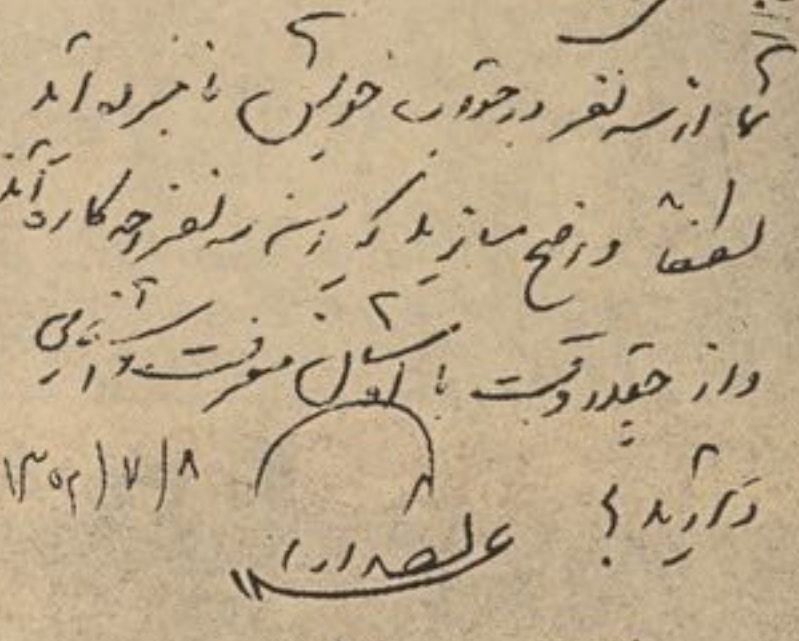 شما از سه نفر در جواب خویش نامبرده اید
لطفاً واضح سازید که این سه نفر چه کاره اند
و از چقدر وقت با اوشان معرفت و آشنایی
دارید؟
۱۳۵۲/۷/۸